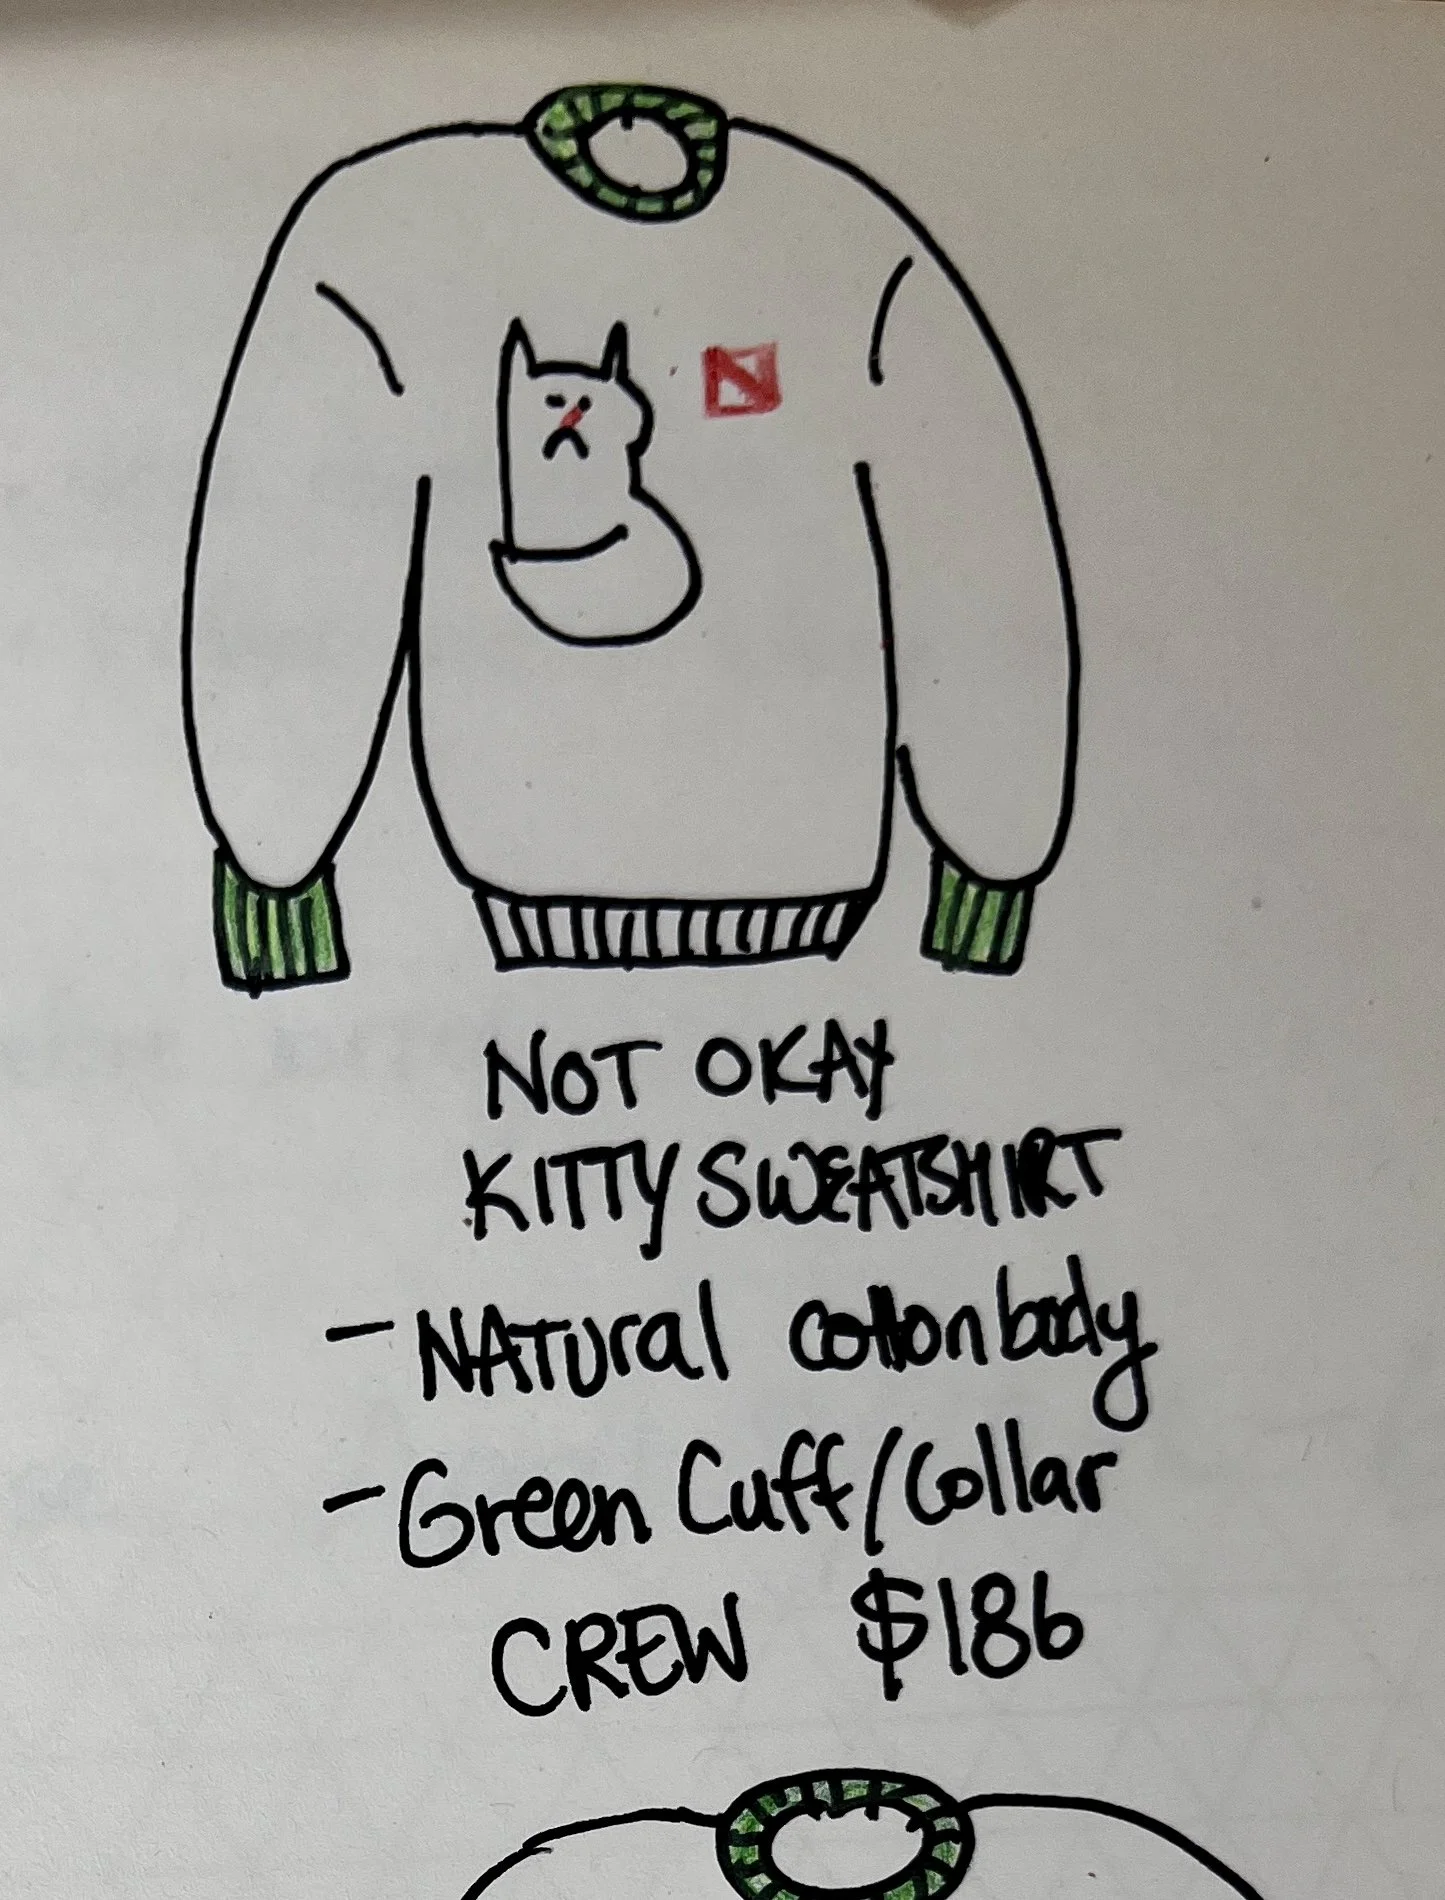 N
NOT OKAY
KITTY SWEATSHIRT
- NATURAL cotton body
- Green Cuff/Collar
CREW $186